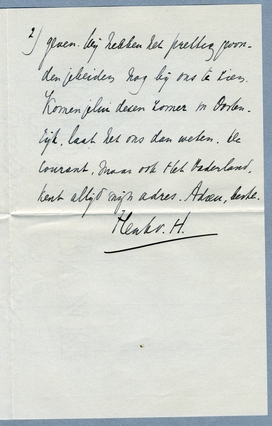 2)
geven. Wij hebben het prettig gevon-
den jelieden nog bij ons te zien.
Komen jelui dezen zomer in Oosten-
rijk, laat het ons dan weten. De
courant, maar ook Het Vaderland,
kent altijd mijn adres. Adieu, beste.
Henk v. H.